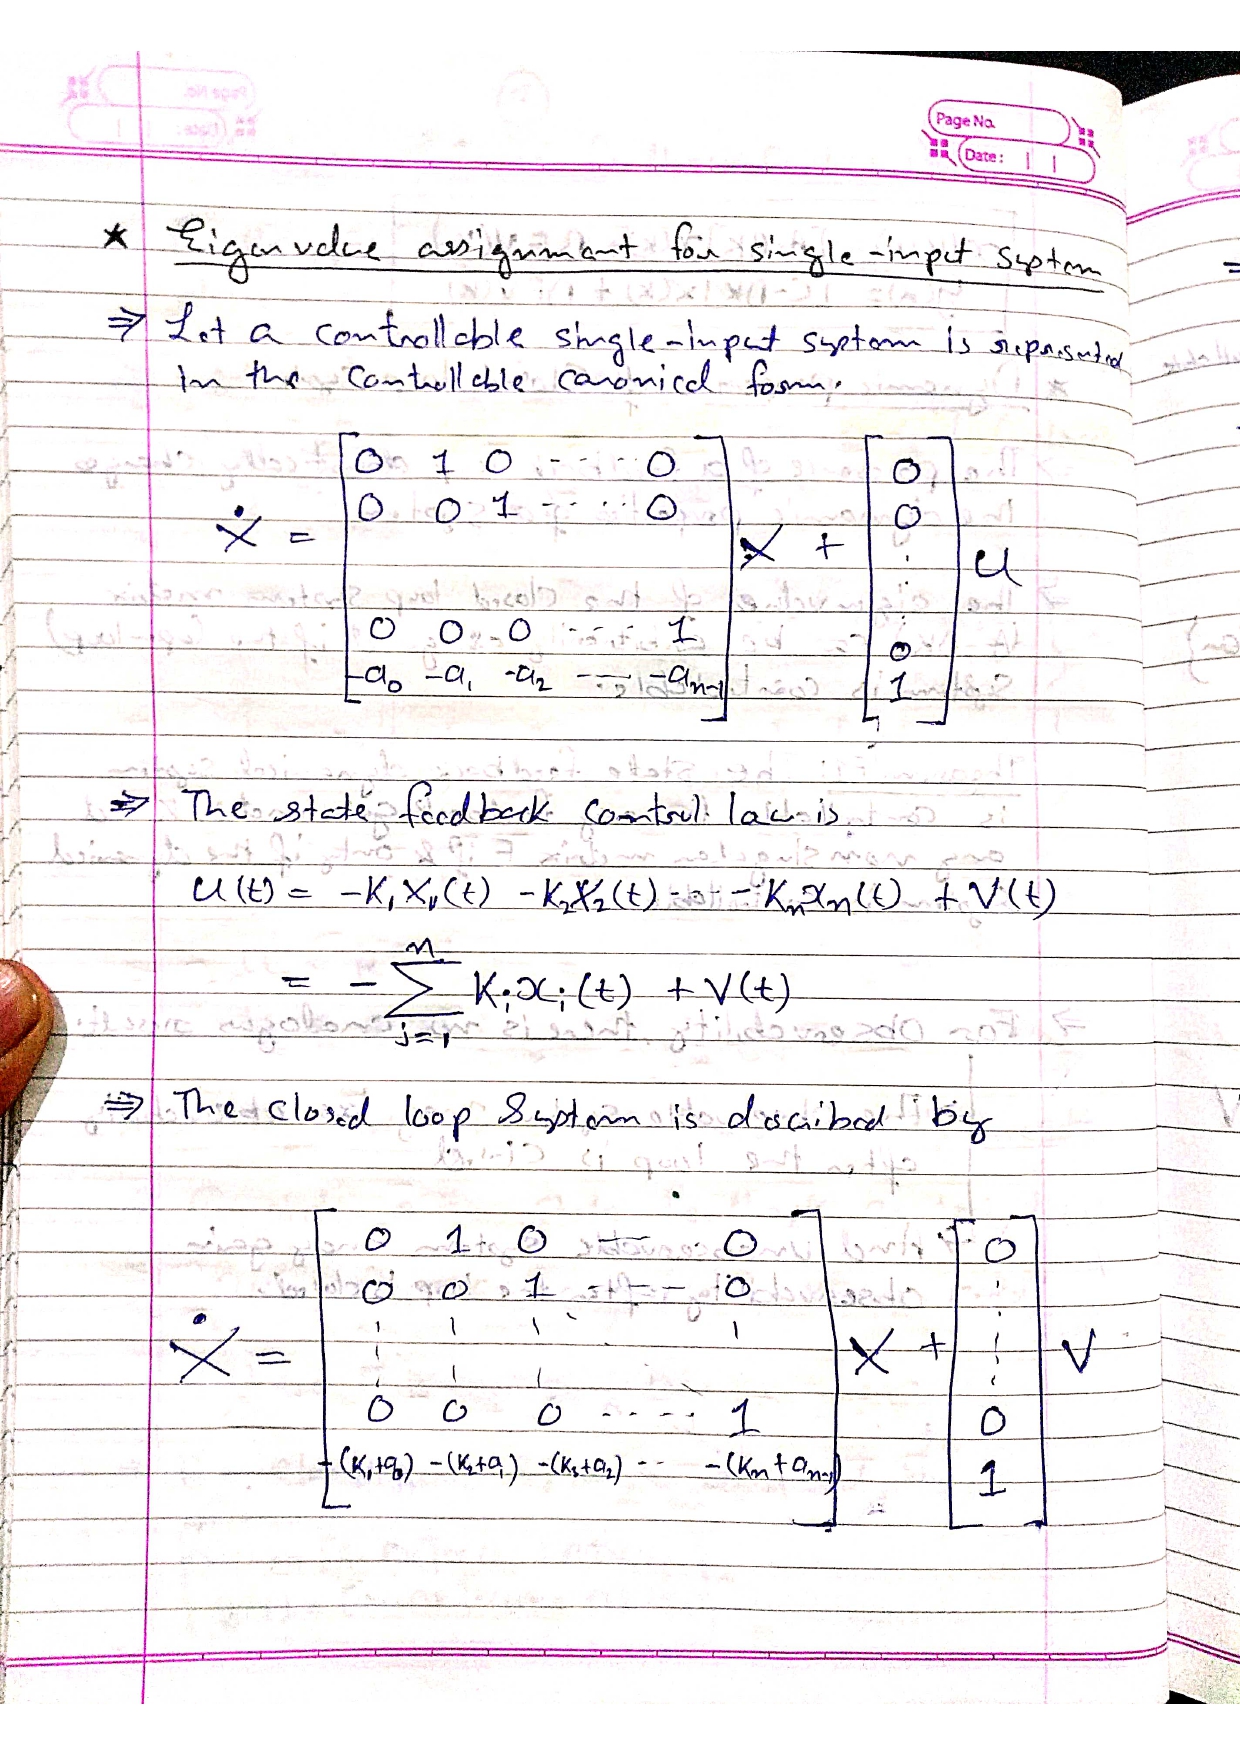 Page No.
Date:
★ Eigenvalue assignment for single-input system
⇒ Let a controllable single-input system is represented
in the controllable canonical form.
0 1 0 --- 0
0 0 1 --- 0
Ẋ = X + U
0 0 0 --- 1
-a₀ -a₁ -a₂ --- -aₙ₋₁
0
0
⋮
0
1
⇒ The state feedback control law is
U(t) = -K₁X₁(t) - K₂X₂(t) --- - Kₙxₙ(t) + V(t)
= - ∑ⁿⱼ₌₁ Kᵢxᵢ(t) + V(t)
⇒ The closed loop system is described by
0 1 0 --- 0
0 0 1 --- 0
Ẋ = X + V
0 0 0 ---- 1
-(K₁+a₀) -(K₂+a₁) -(K₃+a₂) -- -(Kₙ+aₙ₋₁)
0
⋮
0
1